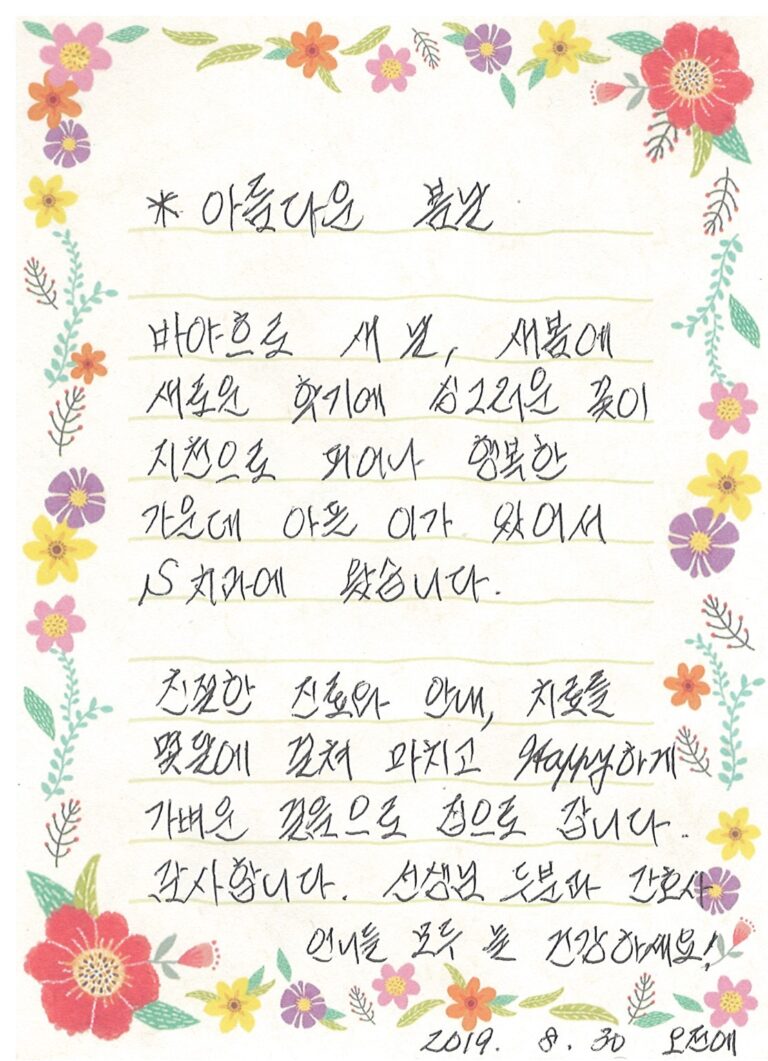 * 아름다운 봄날
바야흐로 새 날, 새봄에
새로운 학기에 싱그러운 꽃이
지천으로 피어나 행복한
가운데 아픈 이가 있어서
S 치과에 왔습니다.
친절한 진료와 안내, 치료를
몇달에 걸쳐 마치고 Happy하게
가벼운 걸음으로 집으로 갑니다.
감사합니다. 선생님 두분과 간호사
언니들 모두 늘 건강하세요!
2019. 8. 30 오전에